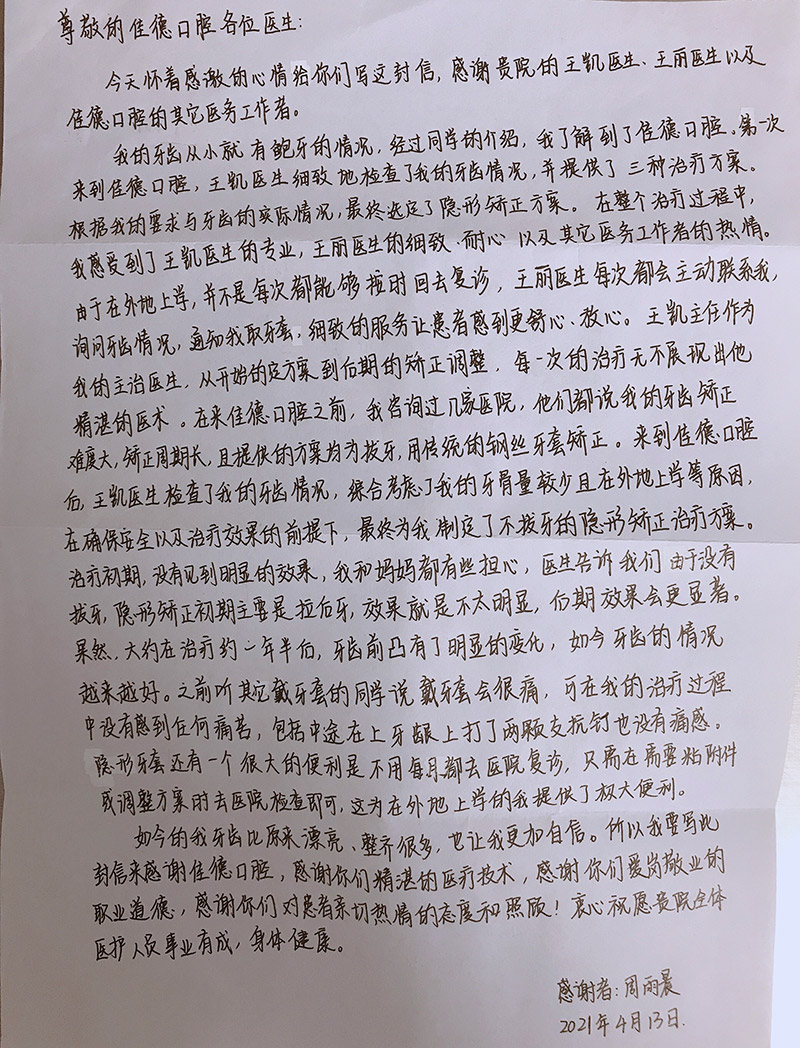 尊敬的佳德口腔各位医生:
今天怀着感激的心情给你们写这封信，感谢贵院的王凯医生、王丽医生以及
佳德口腔的其它医务工作者。
我的牙齿从小就有龅牙的情况，经过同学的介绍，我了解到了佳德口腔。第一次
来到佳德口腔，王凯医生细致地检查了我的牙齿情况，并提供了三种治疗方案。
根据我的要求与牙齿的实际情况，最终选定了隐形矫正方案。在整个治疗过程中，
我感受到了王凯医生的专业，王丽医生的细致、耐心以及其它医务工作者的热情。
由于在外地上学，并不是每次都能够按时回去复诊，王丽医生每次都会主动联系我，
询问牙齿情况，通知我取牙套，细致的服务让患者感到更舒心、放心。王凯主任作为
我的主治医生，从开始的定方案到后期的矫正调整，每一次的治疗无不展现出他
精湛的医术。在来佳德口腔之前，我咨询过几家医院，他们都说我的牙齿矫正
难度大，矫正周期长，且提供的方案均为拔牙，用传统的钢丝牙套矫正。来到佳德口腔
后，王凯医生检查了我的牙齿情况，综合考虑了我的牙骨量较少且在外地上学等原因，
在确保安全以及治疗效果的前提下，最终为我制定了不拔牙的隐形矫正治疗方案。
治疗初期，没有见到明显的效果，我和妈妈都有些担心，医生告诉我们由于没有
拔牙，隐形矫正初期主要是拉后牙，效果就是不太明显，后期效果会更显著。
果然，大约在治疗约一年半后，牙齿前凸有了明显的变化，如今牙齿的情况
越来越好。之前听其它戴牙套的同学说戴牙套会很痛，可在我的治疗过程
中没有感到任何痛苦，包括中途在上牙龈上打了两颗支抗钉也没有痛感。
隐形牙套还有一个很大的便利是不用每月都去医院复诊，只需在需要粘附件
或调整方案时去医院检查即可，这为在外地上学的我提供了极大便利。
如今的我牙齿比原来漂亮、整齐很多，也让我更加自信。所以我要写此
封信来感谢佳德口腔，感谢你们精湛的医疗技术，感谢你们爱岗敬业的
职业道德，感谢你们对患者亲切热情的态度和照顾！衷心祝愿贵院全体
医护人员事业有成，身体健康。
感谢者:周丽晨
2021年4月13日.